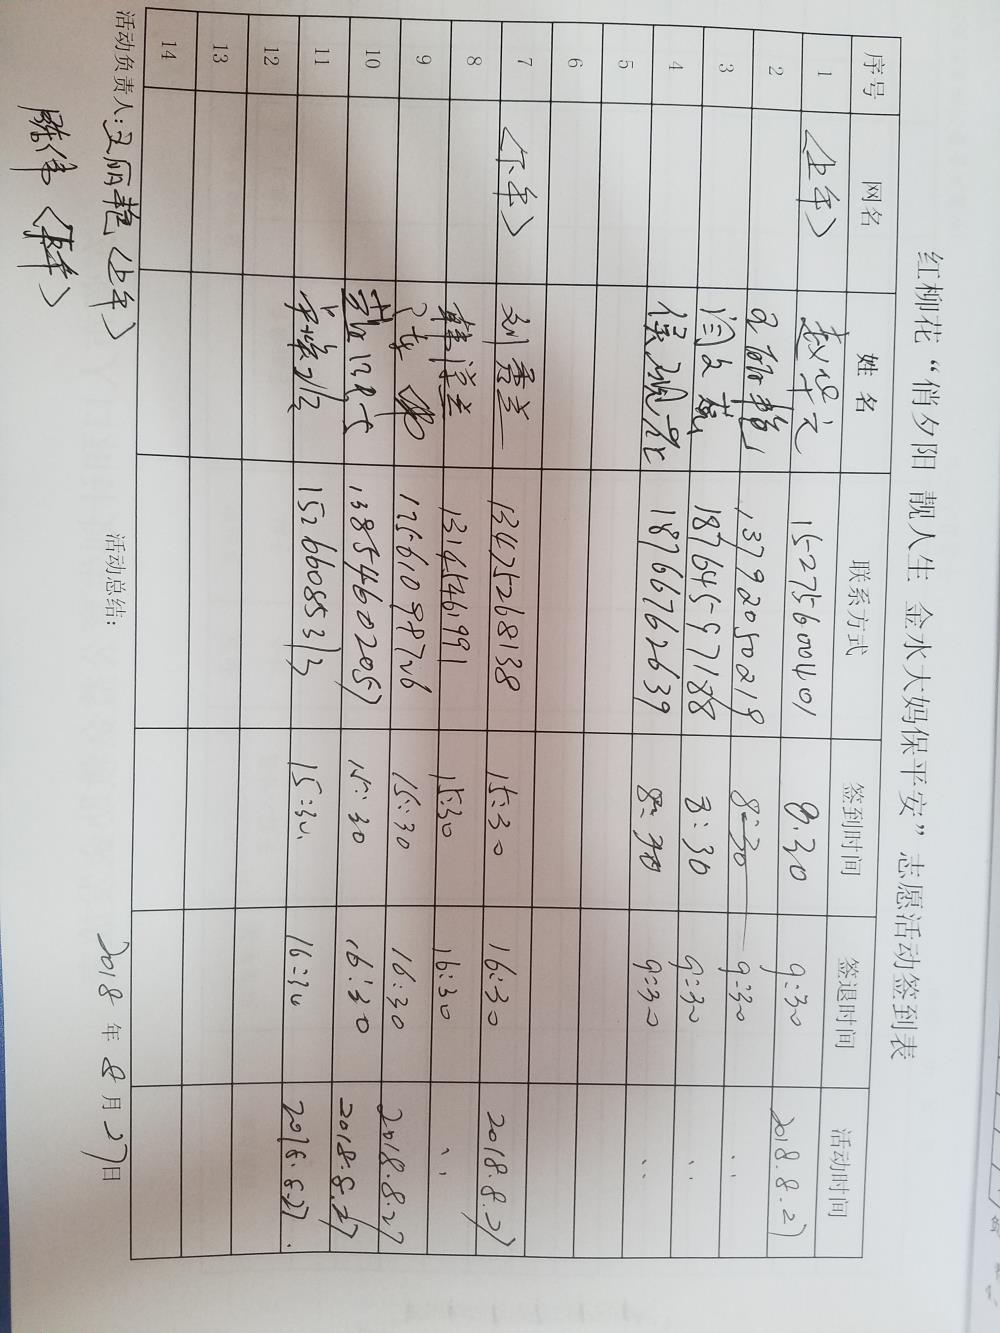 红柳花“俏夕阳 靓人生 金水大妈保平安”志愿活动签到表
序号 网名 姓名 联系方式 签到时间 签退时间 活动时间
1 〈上午〉 15275600401 8:30 9:30 2018.8.27
2 13792050219 8:30 9:30 〃
3 闫文 18764597188 8:30 9:30 〃
4 18766762639 8:30 9:30 〃
5
6
7 〈下午〉 刘秀兰 13475268138 15:30 16:30 2018.8.27
8 韩洋兰 13145461991 15:30 16:30 〃
9 15:30 16:30 2018.8.27
10 13854602057 15:30 16:30 2018.8.27
11 15266085313 15:30 16:30 2018.8.27.
12
13
14
活动负责人: 丽艳〈上午〉 活动总结: 2018年8月27日
陈伟〈下午〉